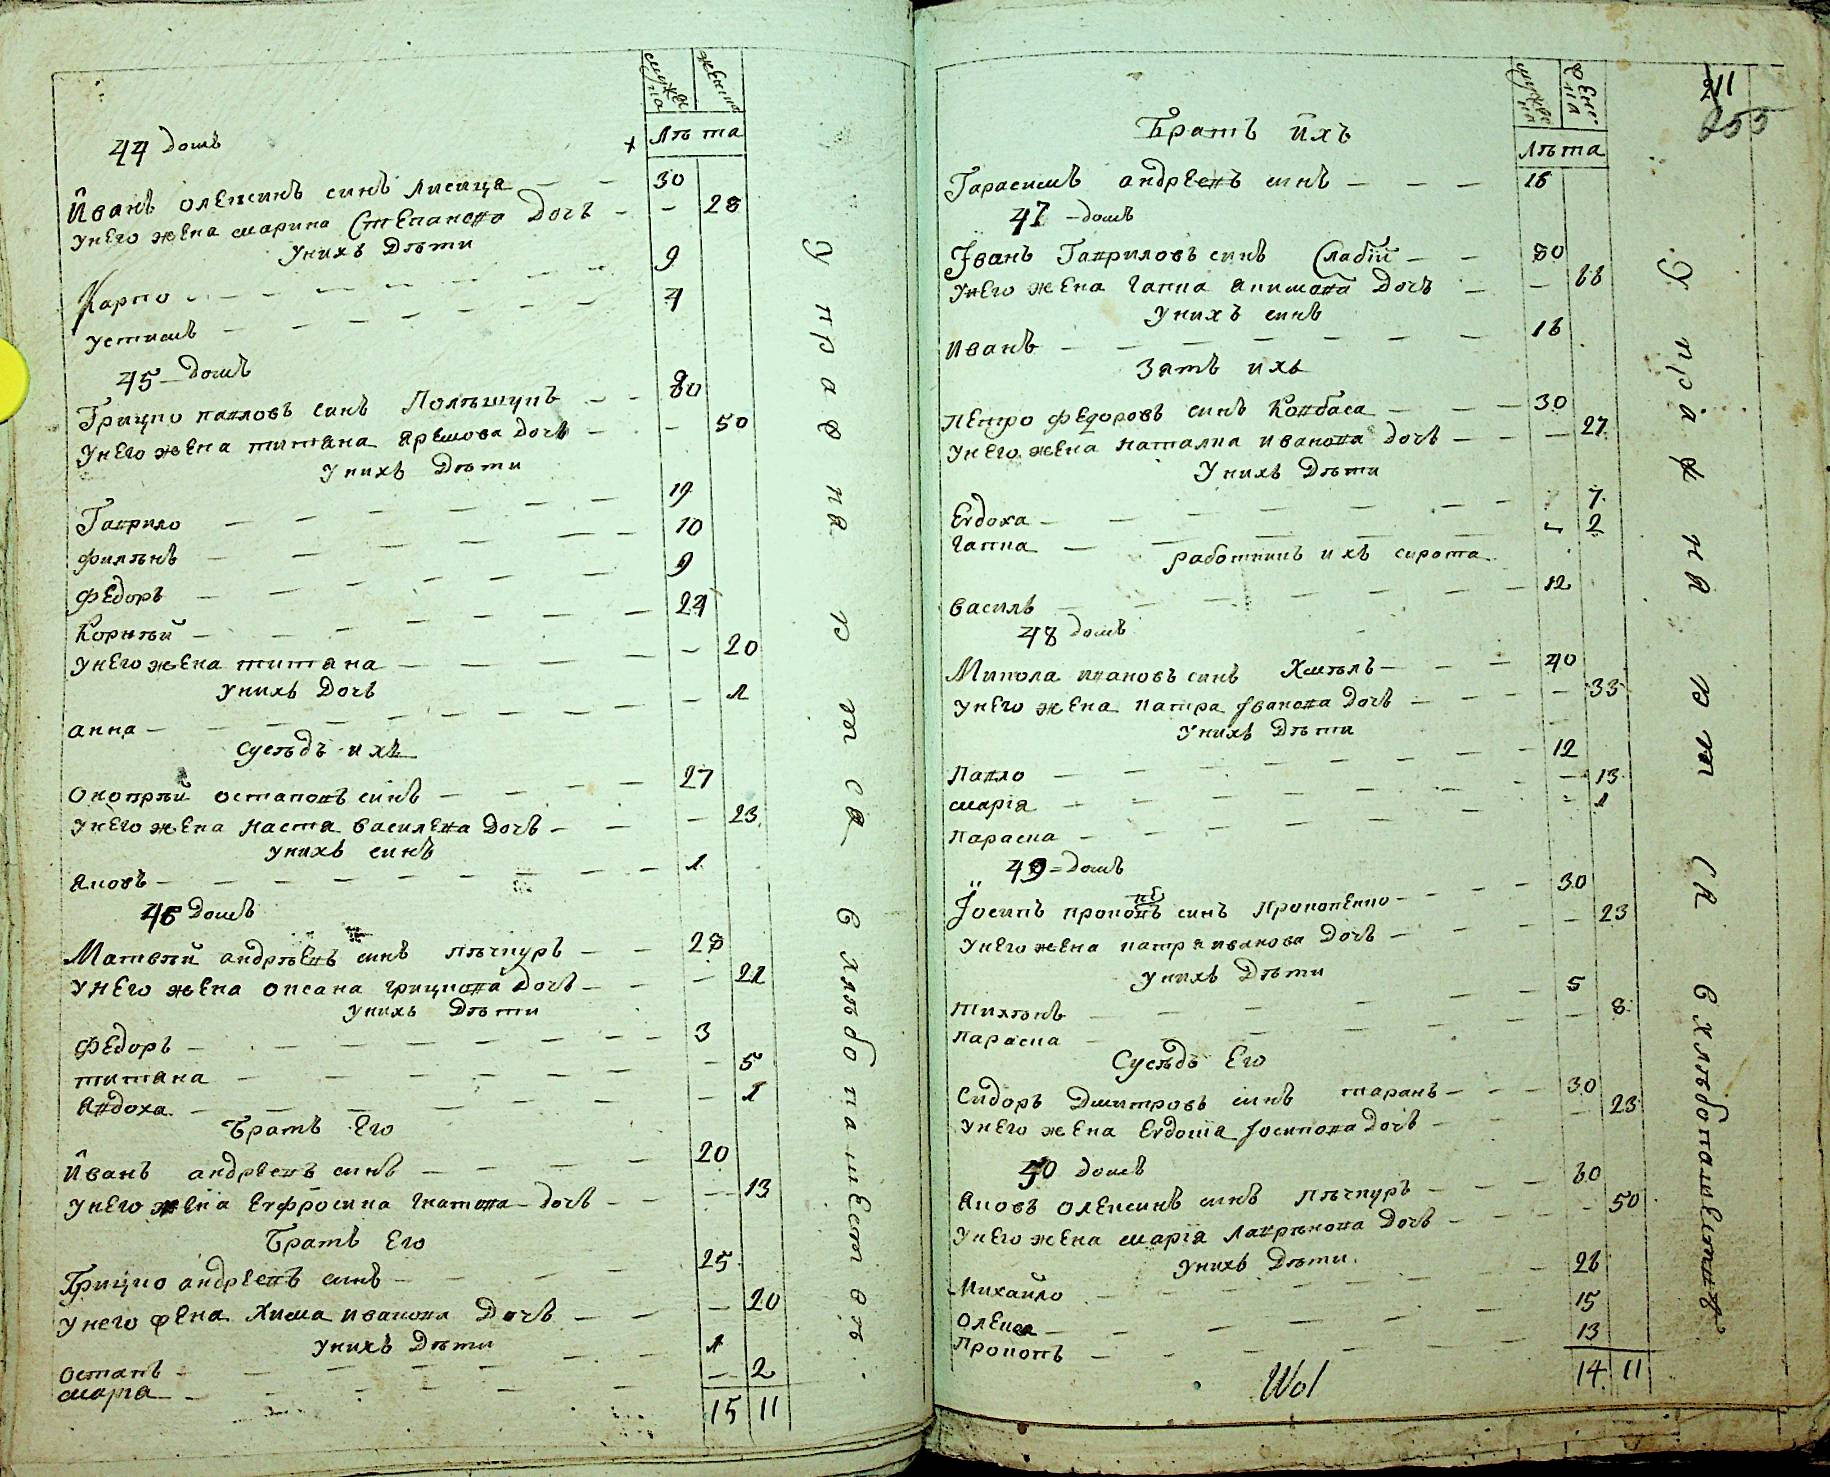 мужеска женска
лѣта
44 домъ
Иванъ олексинъ синъ лисица — — 30
унего жена марина Степанова дочъ — — 28
унихъ дѣти
Карпо — 9
устимъ — 4
45 — домъ
Грицко павловъ синъ Полѣшукъ — — 80
унего жена татяна яремова дочъ — — 50
унихъ дѣти
Гаврило — 19
филѣнъ — 10
федоръ — 9
Корнѣй — 24
унего жена татяна — — 20
унихъ дочъ
анна — — 1
сусѣдъ ихъ
онопрѣй остаповъ синъ — 27
унего жена настя василева дочъ — — 23
унихъ синъ
яковъ — 1
46 домъ
Матвѣй андрѣевъ синъ пѣчкуръ — — 28
унего жена оксана грицкова дочъ — — 21
унихъ дѣти
федоръ — 3
татяна — — 5
явдоха — — 1
братъ его
Иванъ андреевъ синъ — 20
унего жена евфросина гнатова дочъ — — 13
братъ его
Грицко андреевъ синъ — 25
унего жена химa иванова дочъ — — 20
унихъ дѣти
остапъ — 1
марiа — — 2
15 11
У правня рт ся
в хлѣбопашествѣ
мужеска женска
лѣта
211
255
братъ ихъ
Гарасимъ андреевъ синъ — — — 16
47 — домъ
Iванъ Гавриловъ синъ Слабiй — — 80
унего жена гапка якимова дочъ — — 66
унихъ синъ
иванъ — 16
зять ихъ
петро федоровъ синъ Ковбаса — — 30
унего жена наталка иванова дочъ — — 27
унихъ дѣти
Евдоха — 7
гапка — 2
работникъ ихъ сирота
василь — 12
48 домъ
Микола ивановъ синъ Хмѣль — — 40
унего жена катра Iванова дочъ — — 33
унихъ дѣти
павло — 12
марiя — — 13
параска — — 1
49 — домъ
Iосипъ прокопъ синъ прокопенко — — 30
унего жена катря иванова дочъ — — 23
унихъ дѣти
тихонъ — 5
параска — — 8
Сусѣдъ его
Сидоръ дмитровъ синъ таранъ — — 30
унего жена Евдокiя Iосипова дочъ — — 23
50 домъ
яковъ олексинъ синъ пѣчкуръ — — 60
унего жена марiя лавренова дочъ — — 50
унихъ дѣти
михайло — 26
олекса — 15
прокопъ — 13
14 11
Wol
У правня рт ся в хлѣбопашествѣ